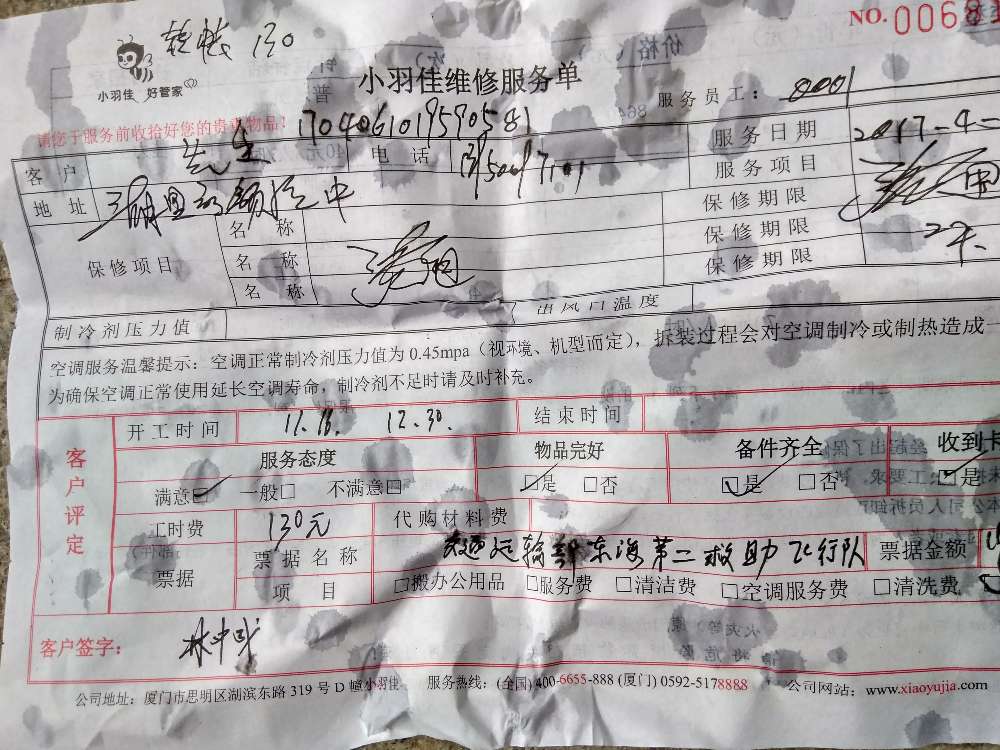 NO. 0068
转帐 130
小羽佳 好管家
小羽佳维修服务单
服务员工：8001
请您于服务前收拾好您的贵重物品！
17040610195905 81
客户 先生 电话
服务日期 2017-4-2
地址
服务项目
保修项目
名称
名称
名称
保修期限
保修期限
保修期限
制冷剂压力值
出风口温度
空调服务温馨提示：空调正常制冷剂压力值为 0.45mpa（视环境、机型而定），拆装过程会对空调制冷或制热造成一
为确保空调正常使用延长空调寿命，制冷剂不足时请及时补充。
客户评定
开工时间 12.30. 结束时间
服务态度 物品完好 备件齐全 收到卡
满意□ 一般□ 不满意□ □是 □否 □是 □否 □是
工时费 130元 代购材料费
票据
票据名称 交通运输部东海第二救助飞行队 票据金额
项目 □搬办公用品 □服务费 □清洁费 □空调服务费 □清洗费
客户签字：
公司地址：厦门市思明区湖滨东路 319 号 D 幢小羽佳 服务热线：(全国) 400-6655-888 (厦门) 0592-5178888 公司网站：www.xiaoyujia.com